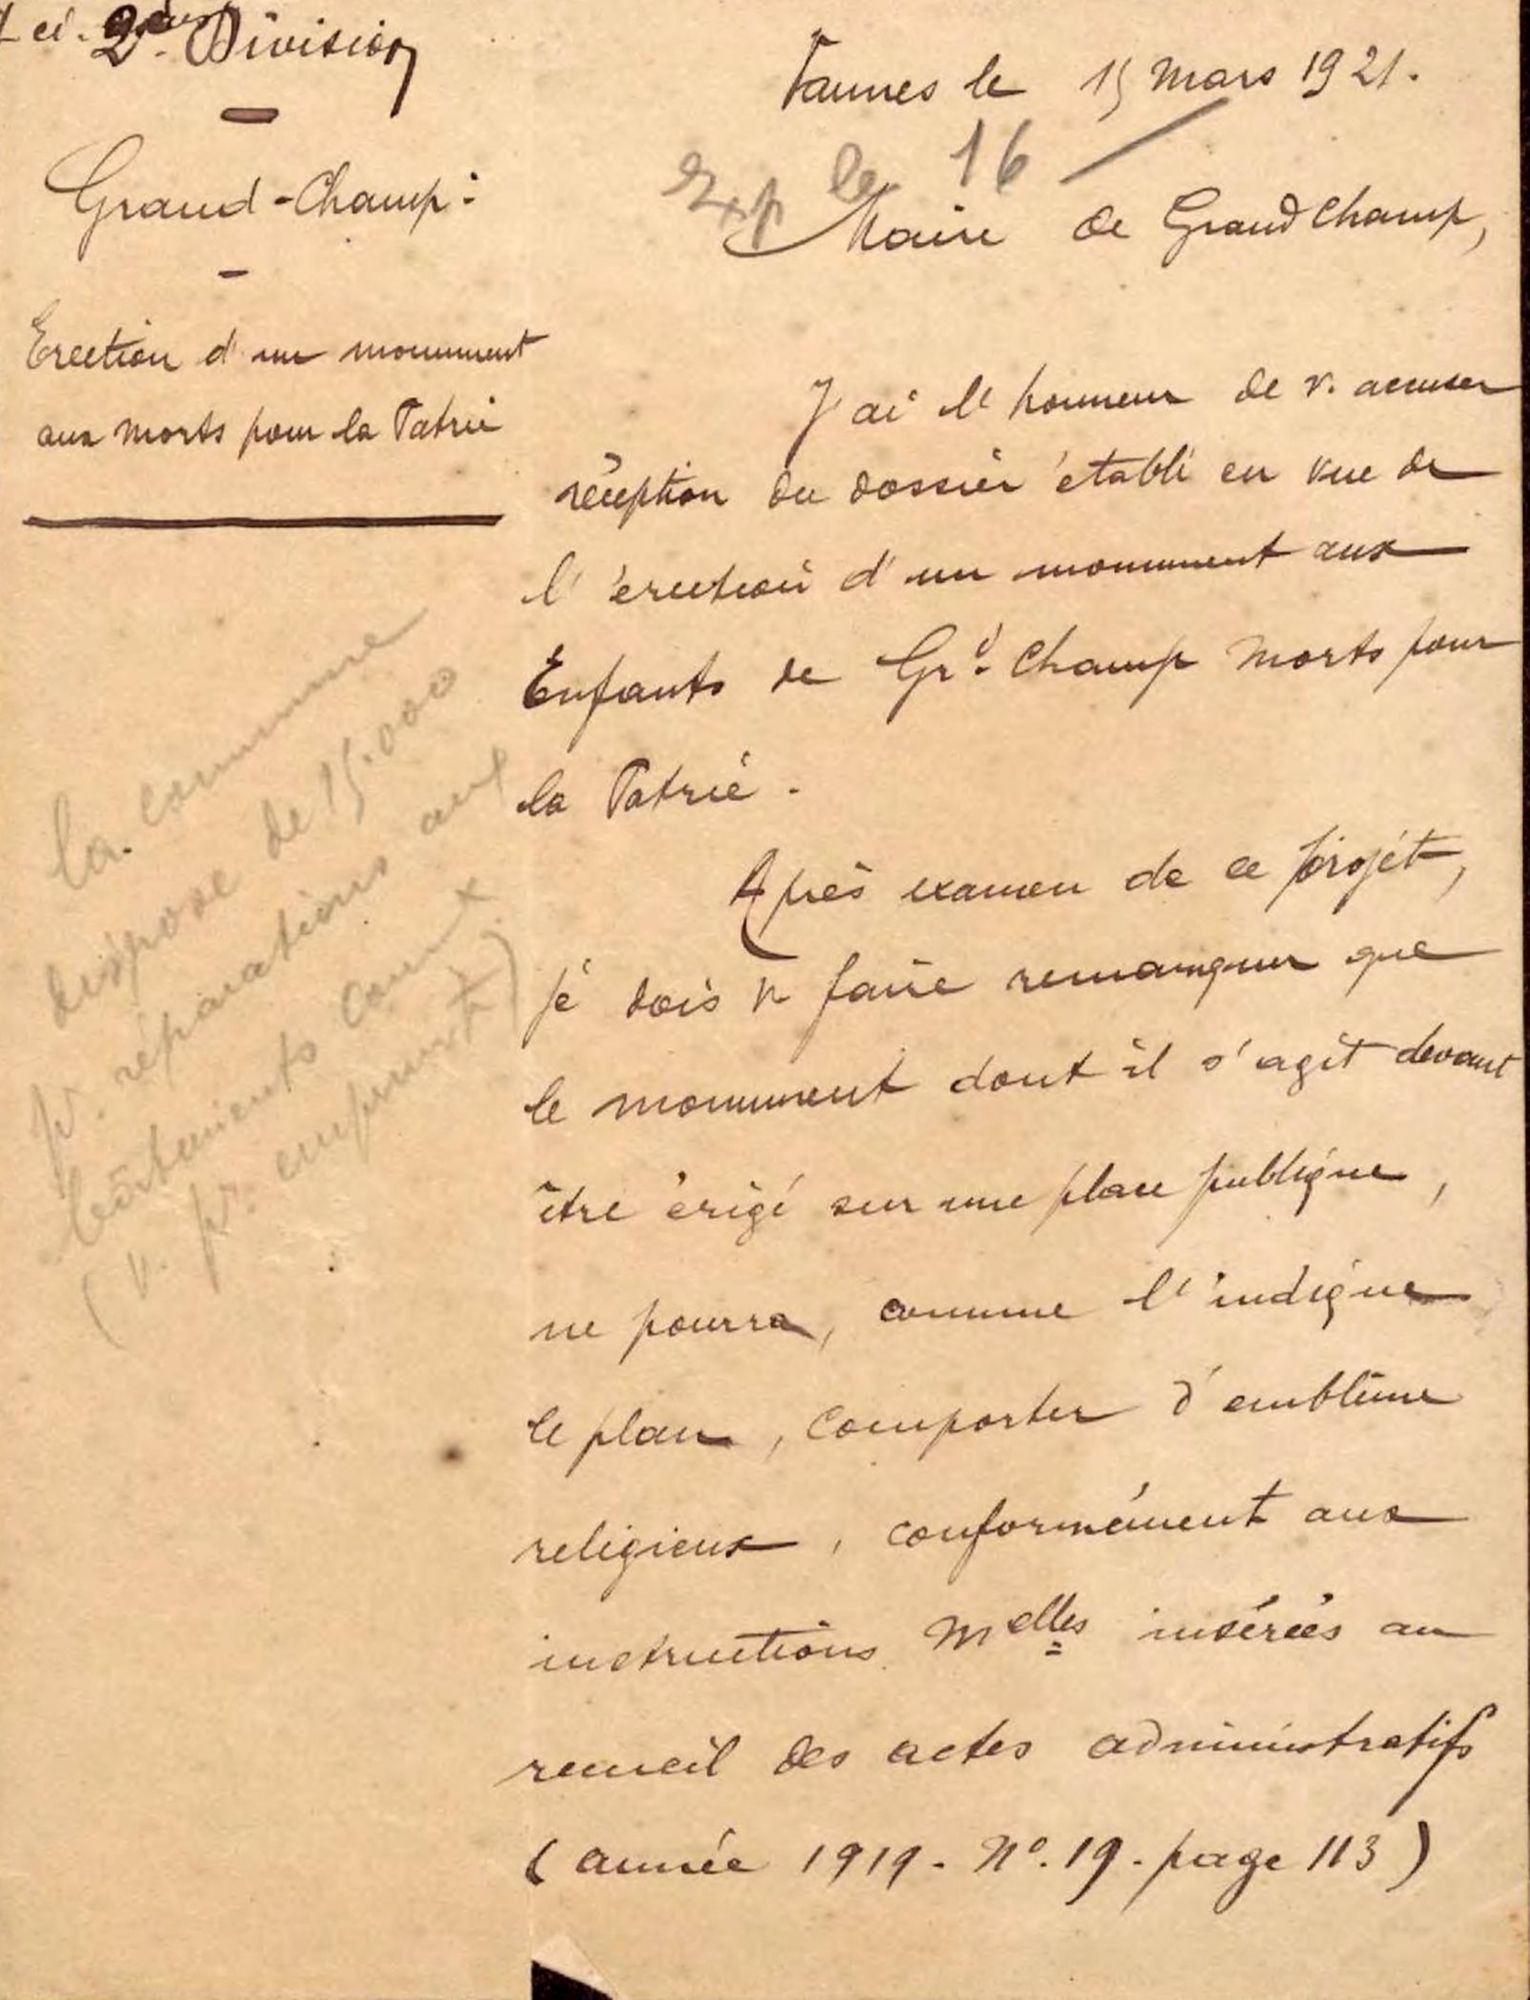 2e. Division
Grand-Champ.
Erection d'un monument
aux morts pour la Patrie
la commune
dispose de 15.000
pr. réparations aux
bâtiments commx
(v. pr. emprunt)
Vannes le 15 mars 1921.
Exp le 16
Maire de Grandchamp,
J'ai l'honneur de v. accuser
réception du dossier établi en vue de
l'érection d'un monument aux
Enfants de Grd. Champ morts pour
la Patrie.
Après examen de ce projet,
je dois v faire remarquer que
le monument dont il s'agit devant
être érigé sur une place publique,
ne pourra, comme l'indique
le plan, comporter d'emblème
religieux, conformément aux
instructions Melles insérées au
recueil des actes administratifs
(année 1919. No. 19. page 113)